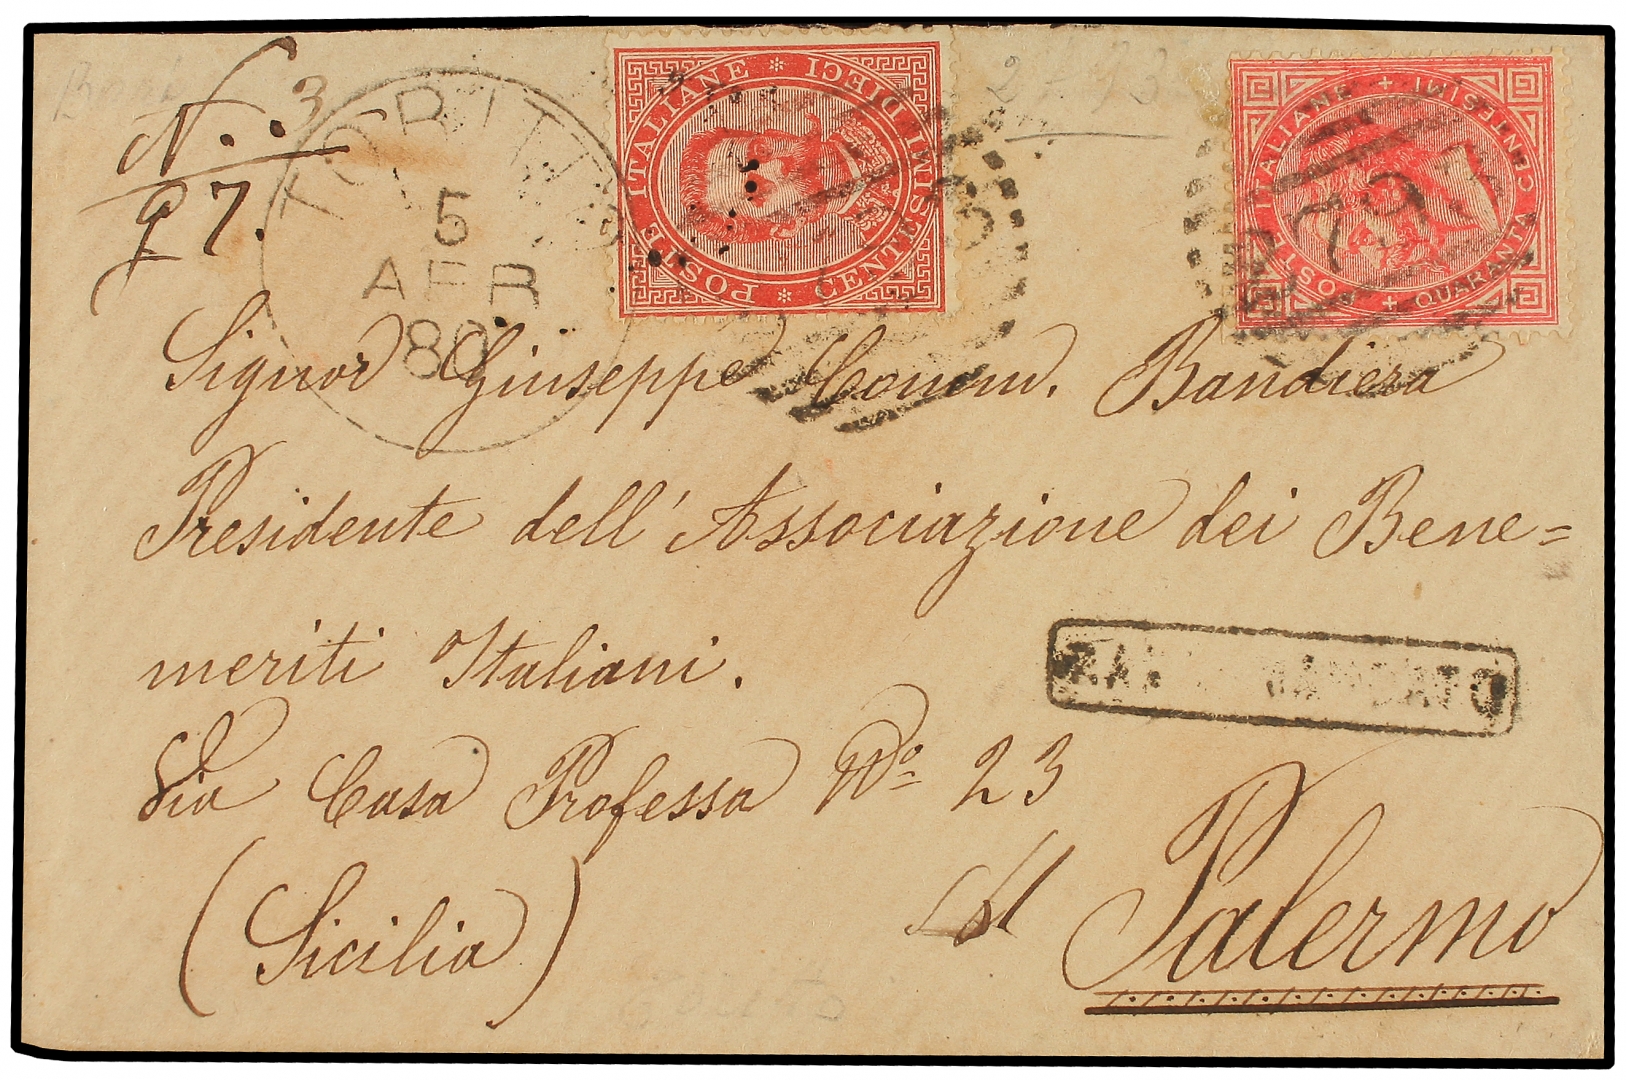 N. 3
97.
TORITTO
5
APR
80
POSTE ITALIANE * CENTESIMI DIECI *
POSTE ITALIANE + CENTESIMI QUARANTA +
2793
Signor Giuseppe Comm. Bandiera
Presidente dell'Associazione dei Bene=
meriti Italiani.
RACCOMANDATO
Via Casa Professa No 23
(Sicilia)
Palermo